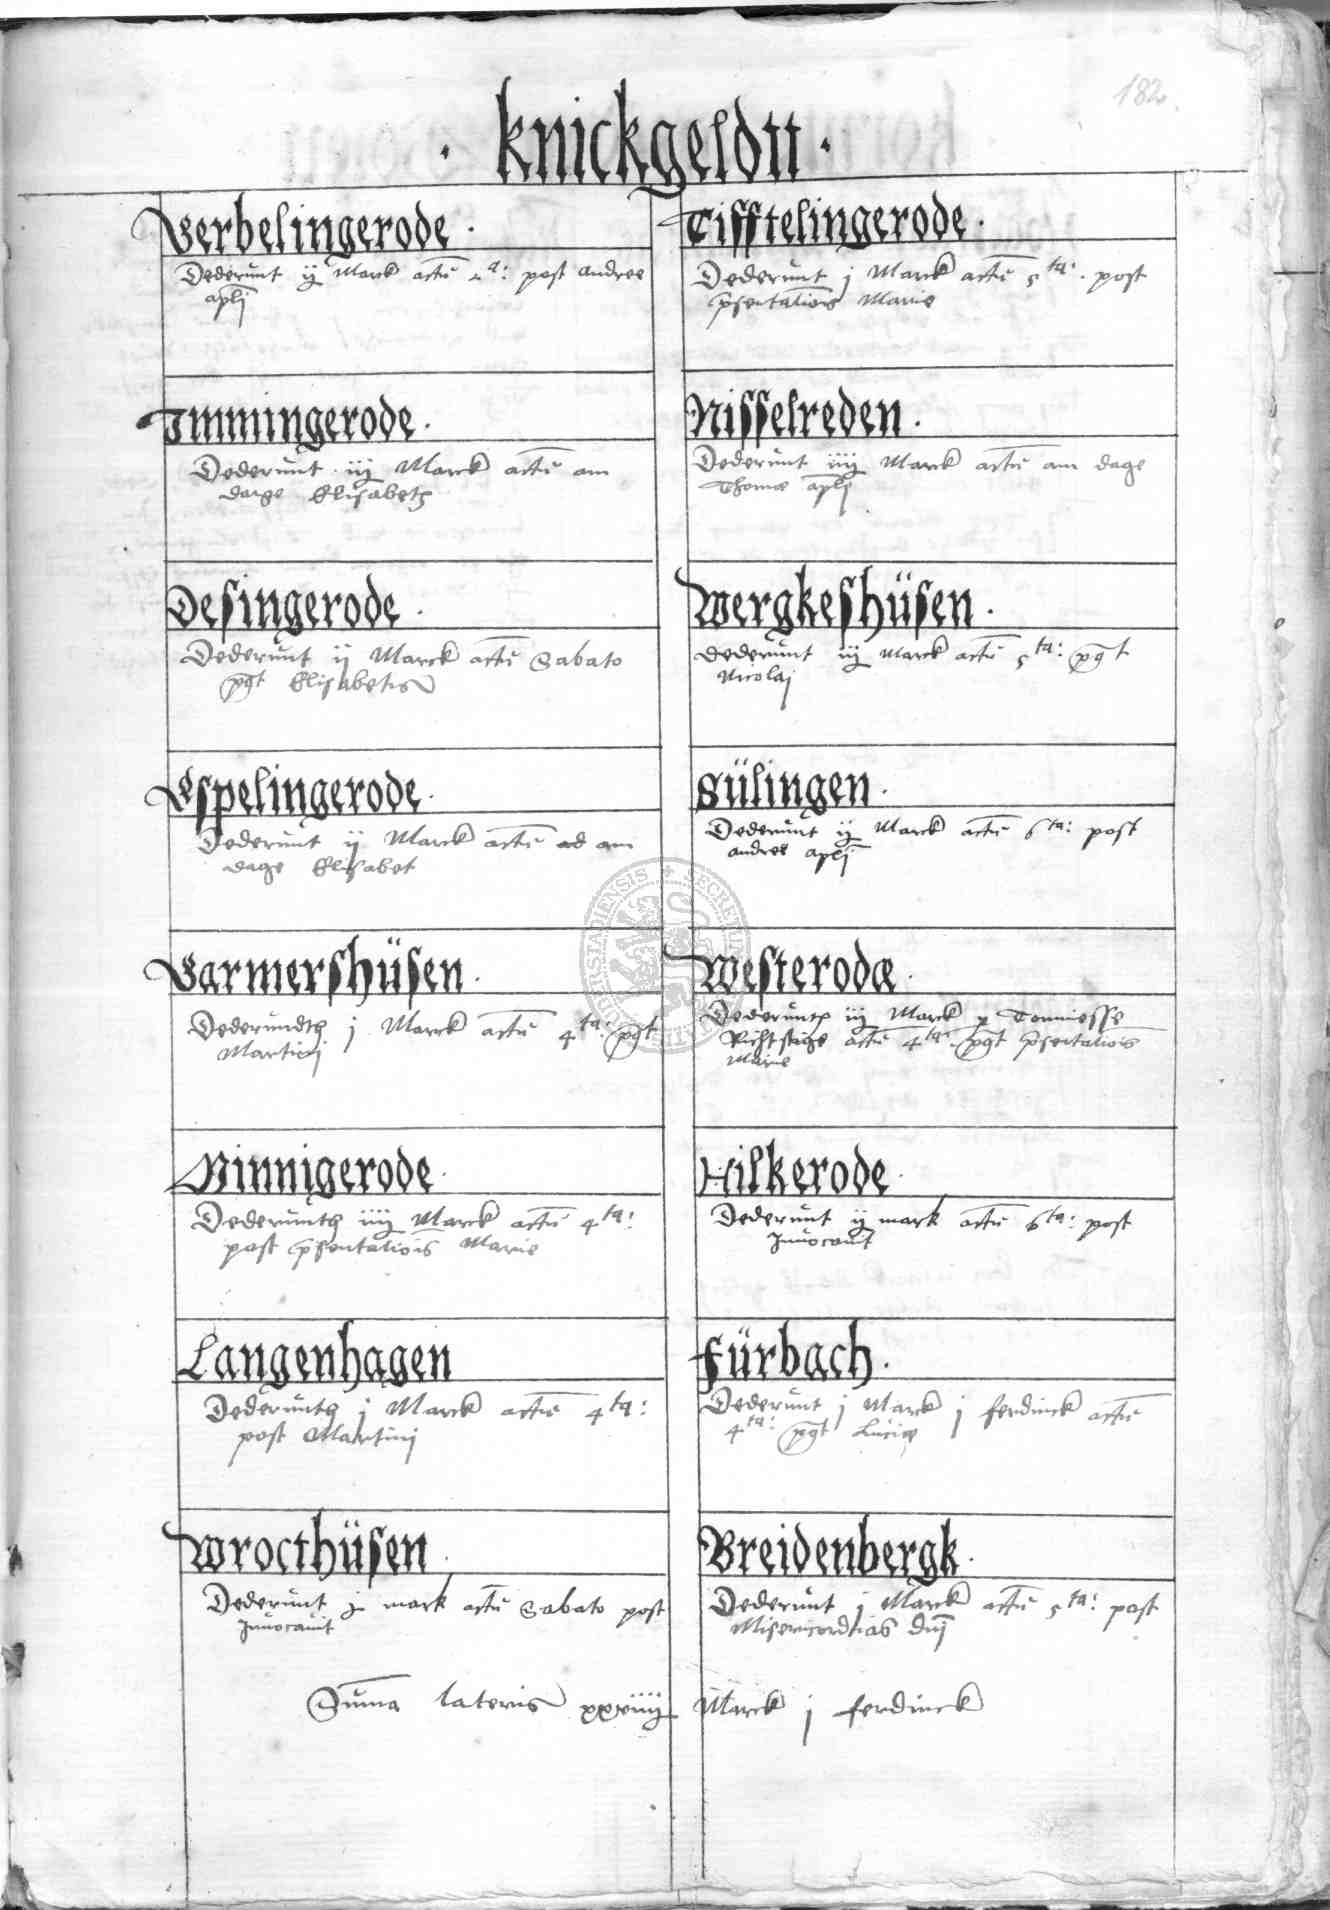 182.
· knickgeldtt ·
Verbelingerode ·
Dederunt ij Marck actu 2a: post Andree
aplj
Immingerode ·
Dederunt iij Marck actu am
dage Elisabeth
Desingerode ·
Dederunt ij Marck actu Sabato
pgt Elisabetis
Espelingerode ·
Dederunt ij Marck actu ad am
dage Elisabet
Varmershüsen ·
Dederundth j Marck actu 4ta: pgt
Martinj
Minnigerode ·
Dederunth iiij Marck actu 4ta:
post psentationis Marie
Langenhagen
Dederunth j Marck actu 4ta:
post Martinj
Wrocthüsen ·
Dederunt j mark actu Sabato post
Inuocauit
Tifftelingerode ·
Dederunt j Marck actu 5ta: post
psentationis Marie
Nisselreden ·
Dederunt iiij Marck actu am dage
Thome aplj
Wergkeshüsen ·
Dederunt iij Marck actu 5ta: pgt
Nicolaj
Sülingen ·
Dederunt ij Marck actu 6ta: post
Andree aplj
Westerodæ ·
Dederunt iiij Marck p Tonniesse
Richtstige actu 4ta: pgt psentationis
Marie
Hilkerode ·
Dederunt ij mark actu 6ta: post
Inuocauit
Fürbach ·
Dederunt j Marck j ferdinck actu
4ta: pgt Luciæ
Breidenbergk ·
Dederunt j Marck actu 5ta: post
Misericordias dnj
Suma lateris xxxviiij Marck j ferdinck